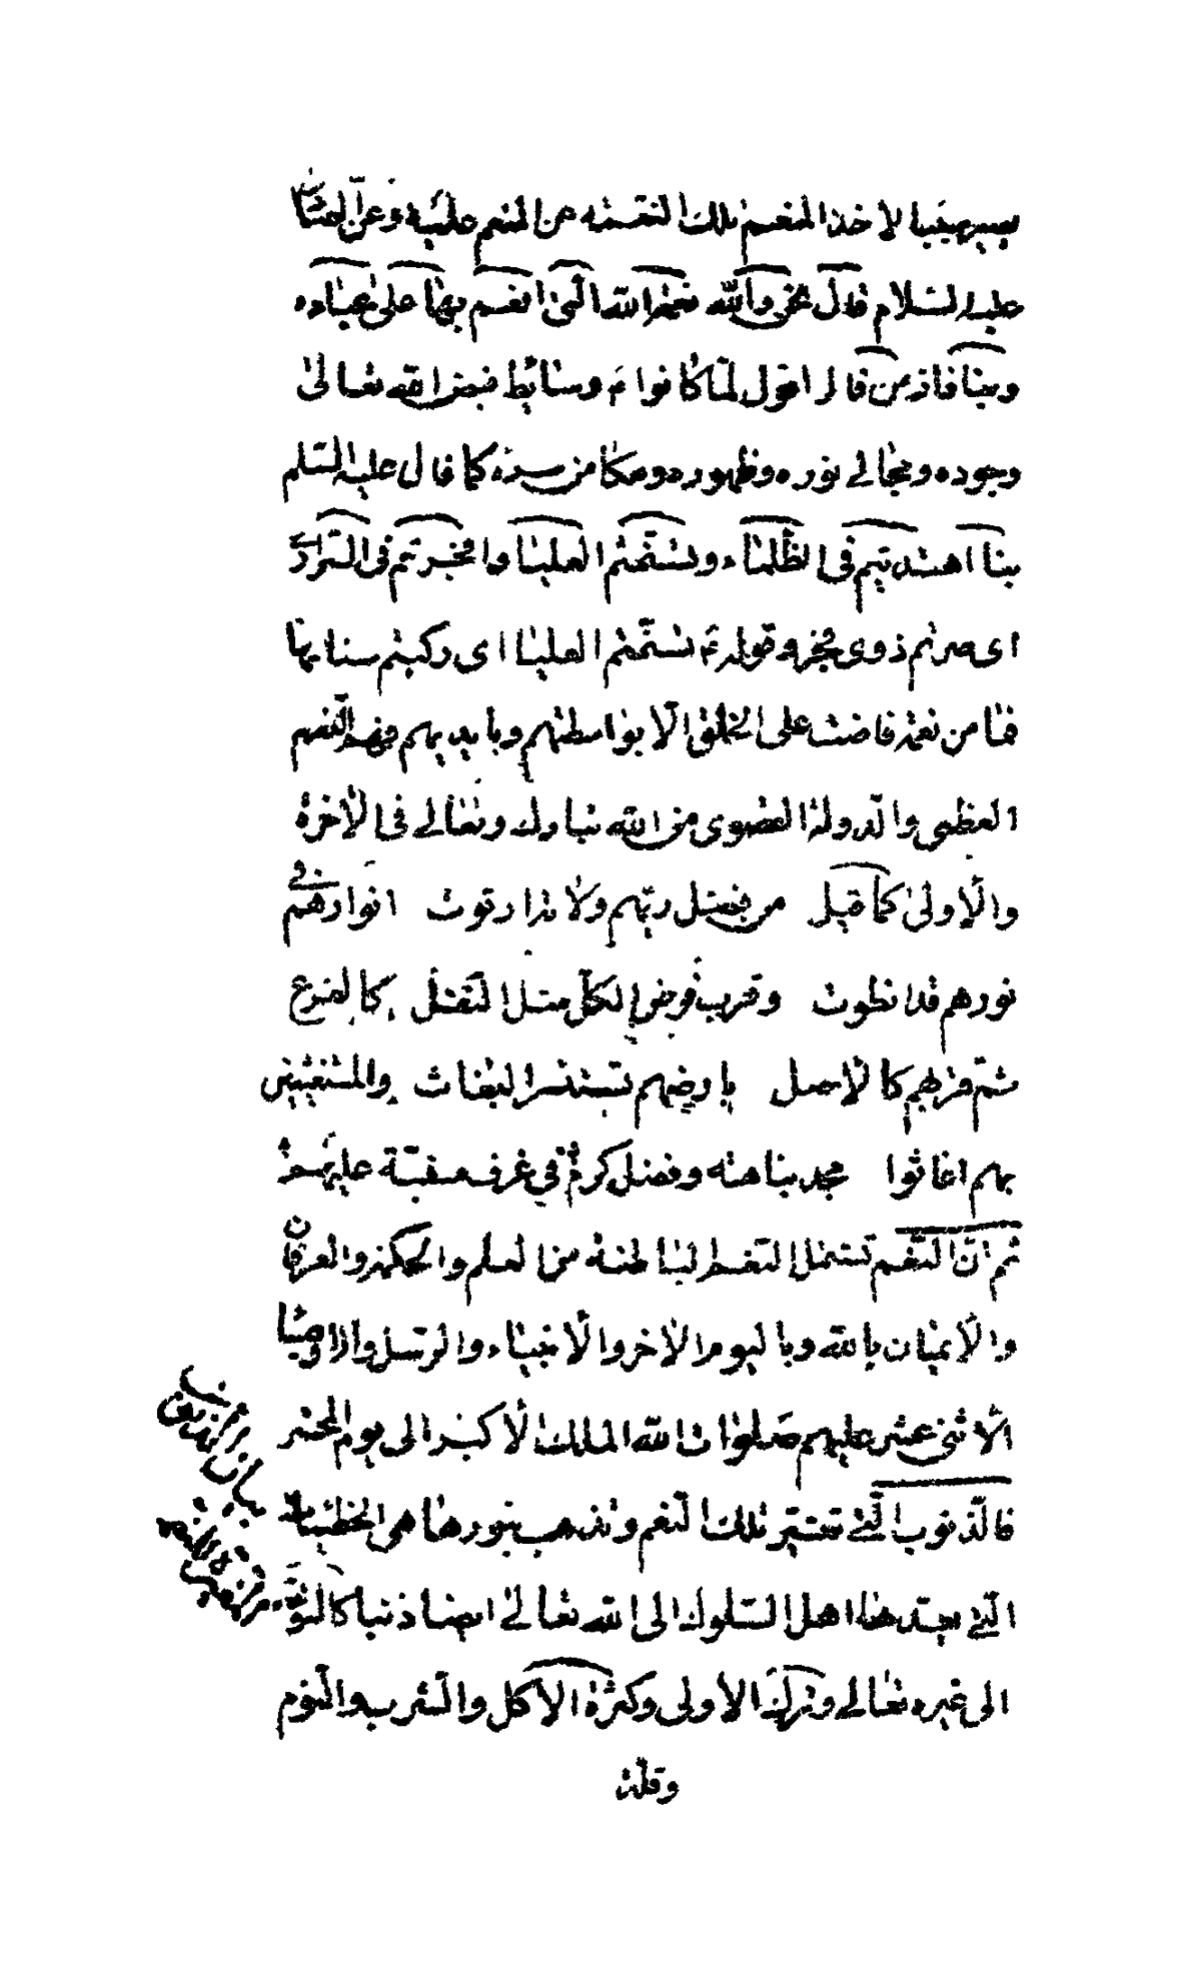 سببهيقينا لاخذ المنعم تلك النقمته عن المنعم عليه وعن الصّا
عليه السّلام قال نحن والله نعمة الله الّتى انعم بها على عباده
وبنا فاز من فاز اقول لمّا كانوا ع وسائط فيض الله تعالى
وجوده ومجالى نوره وظهوره ومكامن سره كما قال عليه السّلم
بنا اهتديتم فى الظّلماء وتسنّمتم العلياء وانفجرتم فى السّرار
اى صرتم ذوى فجر وقوله ع تسنّمتم العليا اى ركبتم سنامها
فما من نعمة فاضت على الخلق الّا بواسطتهم وبايديهم فهم النّعم
العظمى والدّولة القصوى من الله تبارك وتعالى فى الاخرة
والاولى كما قيل من فضل ربّهم ولاندا رتوت انوارهم
نورهم قد انطوت وقرب فرض الكلّ مثل النّفل كالفرع
ثمّ فرعهم كالاصل بارضهم تستنسر البغاث والمستغيثين
بهم اغاثوا مجد تناهت وفضل كرم فى غرف مبنيّة عليهم
ثمّ انّ النّعم تشتمل النّعم الباطنة من العلم والحكمة والعرفان
والايمان بالله وباليوم الاخر والانبياء والرّسل والاوصيا
الاثنى عشر عليهم صلوات الله الملك الاكبر الى يوم المحشر
فالذّنوب الّتى تغيّر تلك النّعم وتذهب بنورها هى الخطيئات
الّتى يعتدها اهل السّلوك الى الله تعالى ايضا ذنبا كالتوجّه
الى غيره تعالى وترك الاولى وكثرة الاكل والشّرب والنّوم
وقلّة
بيان الذنوب